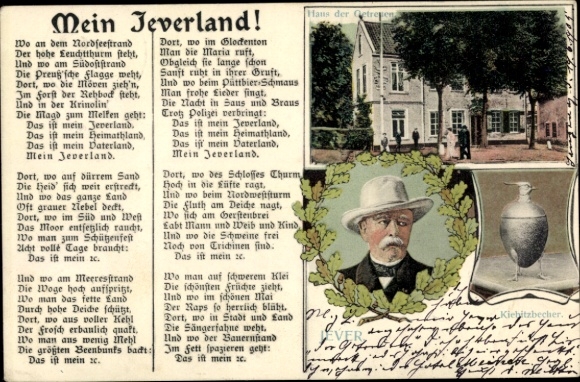 Mein Jeverland!
Wo an dem Nordseestrand
Der hohe Leuchtthurm steht,
Und wo am Südoststrand
Die Preuß'sche Flagge weht,
Dort, wo die Möven zieh'n,
Im Forst der Rehbock steht,
Und in der Krinolin'
Die Magd zum Melken geht:
Das ist mein Jeverland,
Das ist mein Heimathland,
Das ist mein Vaterland,
Mein Jeverland.
Dort, wo auf dürrem Sand
Die Heid' sich weit erstreckt,
Und wo das ganze Land
Oft grauer Nebel deckt,
Dort, wo im Süd und West
Das Moor entsetzlich raucht,
Wo man zum Schützenfest
Acht volle Tage braucht:
Das ist mein ꝛc.
Und wo am Meeresstrand
Die Woge hoch aufspritzt,
Wo man das fette Land
Durch hohe Deiche schützt,
Dort, wo aus voller Kehl
Der Frosch erbaulich quakt,
Wo man aus wenig Mehl
Die größten Beenbunks backt:
Das ist mein ꝛc.
Dort, wo im Glockenton
Man die Maria ruft,
Obgleich sie lange schon
Sanft ruht in ihrer Gruft,
Und wo beim Püttbier-Schmaus
Man frohe Lieder singt,
Die Nacht in Saus und Braus
Trotz Polizei verbringt:
Das ist mein Jeverland,
Das ist mein Heimathland,
Das ist mein Vaterland,
Mein Jeverland.
Dort, wo des Schlosses Thurm
Hoch in die Lüfte ragt,
Und wo beim Nordweststurm
Die Fluth am Deiche nagt,
Wo sich am Gerstenbrei
Labt Mann und Weib und Kind
Und wo die Schweine frei
Noch von Trichinen sind.
Das ist mein ꝛc.
Wo man auf schwerem Klei
Die schönsten Früchte zieht,
Und wo im schönen Mai
Der Raps so herrlich blüht,
Dort, wo in Stadt und Land
Die Sängerfahne weht,
Und wo der Bauernstand
Im Fett spazieren geht:
Das ist mein ꝛc.
Haus der Getreuen
Kiebitzbecher.
JEVER